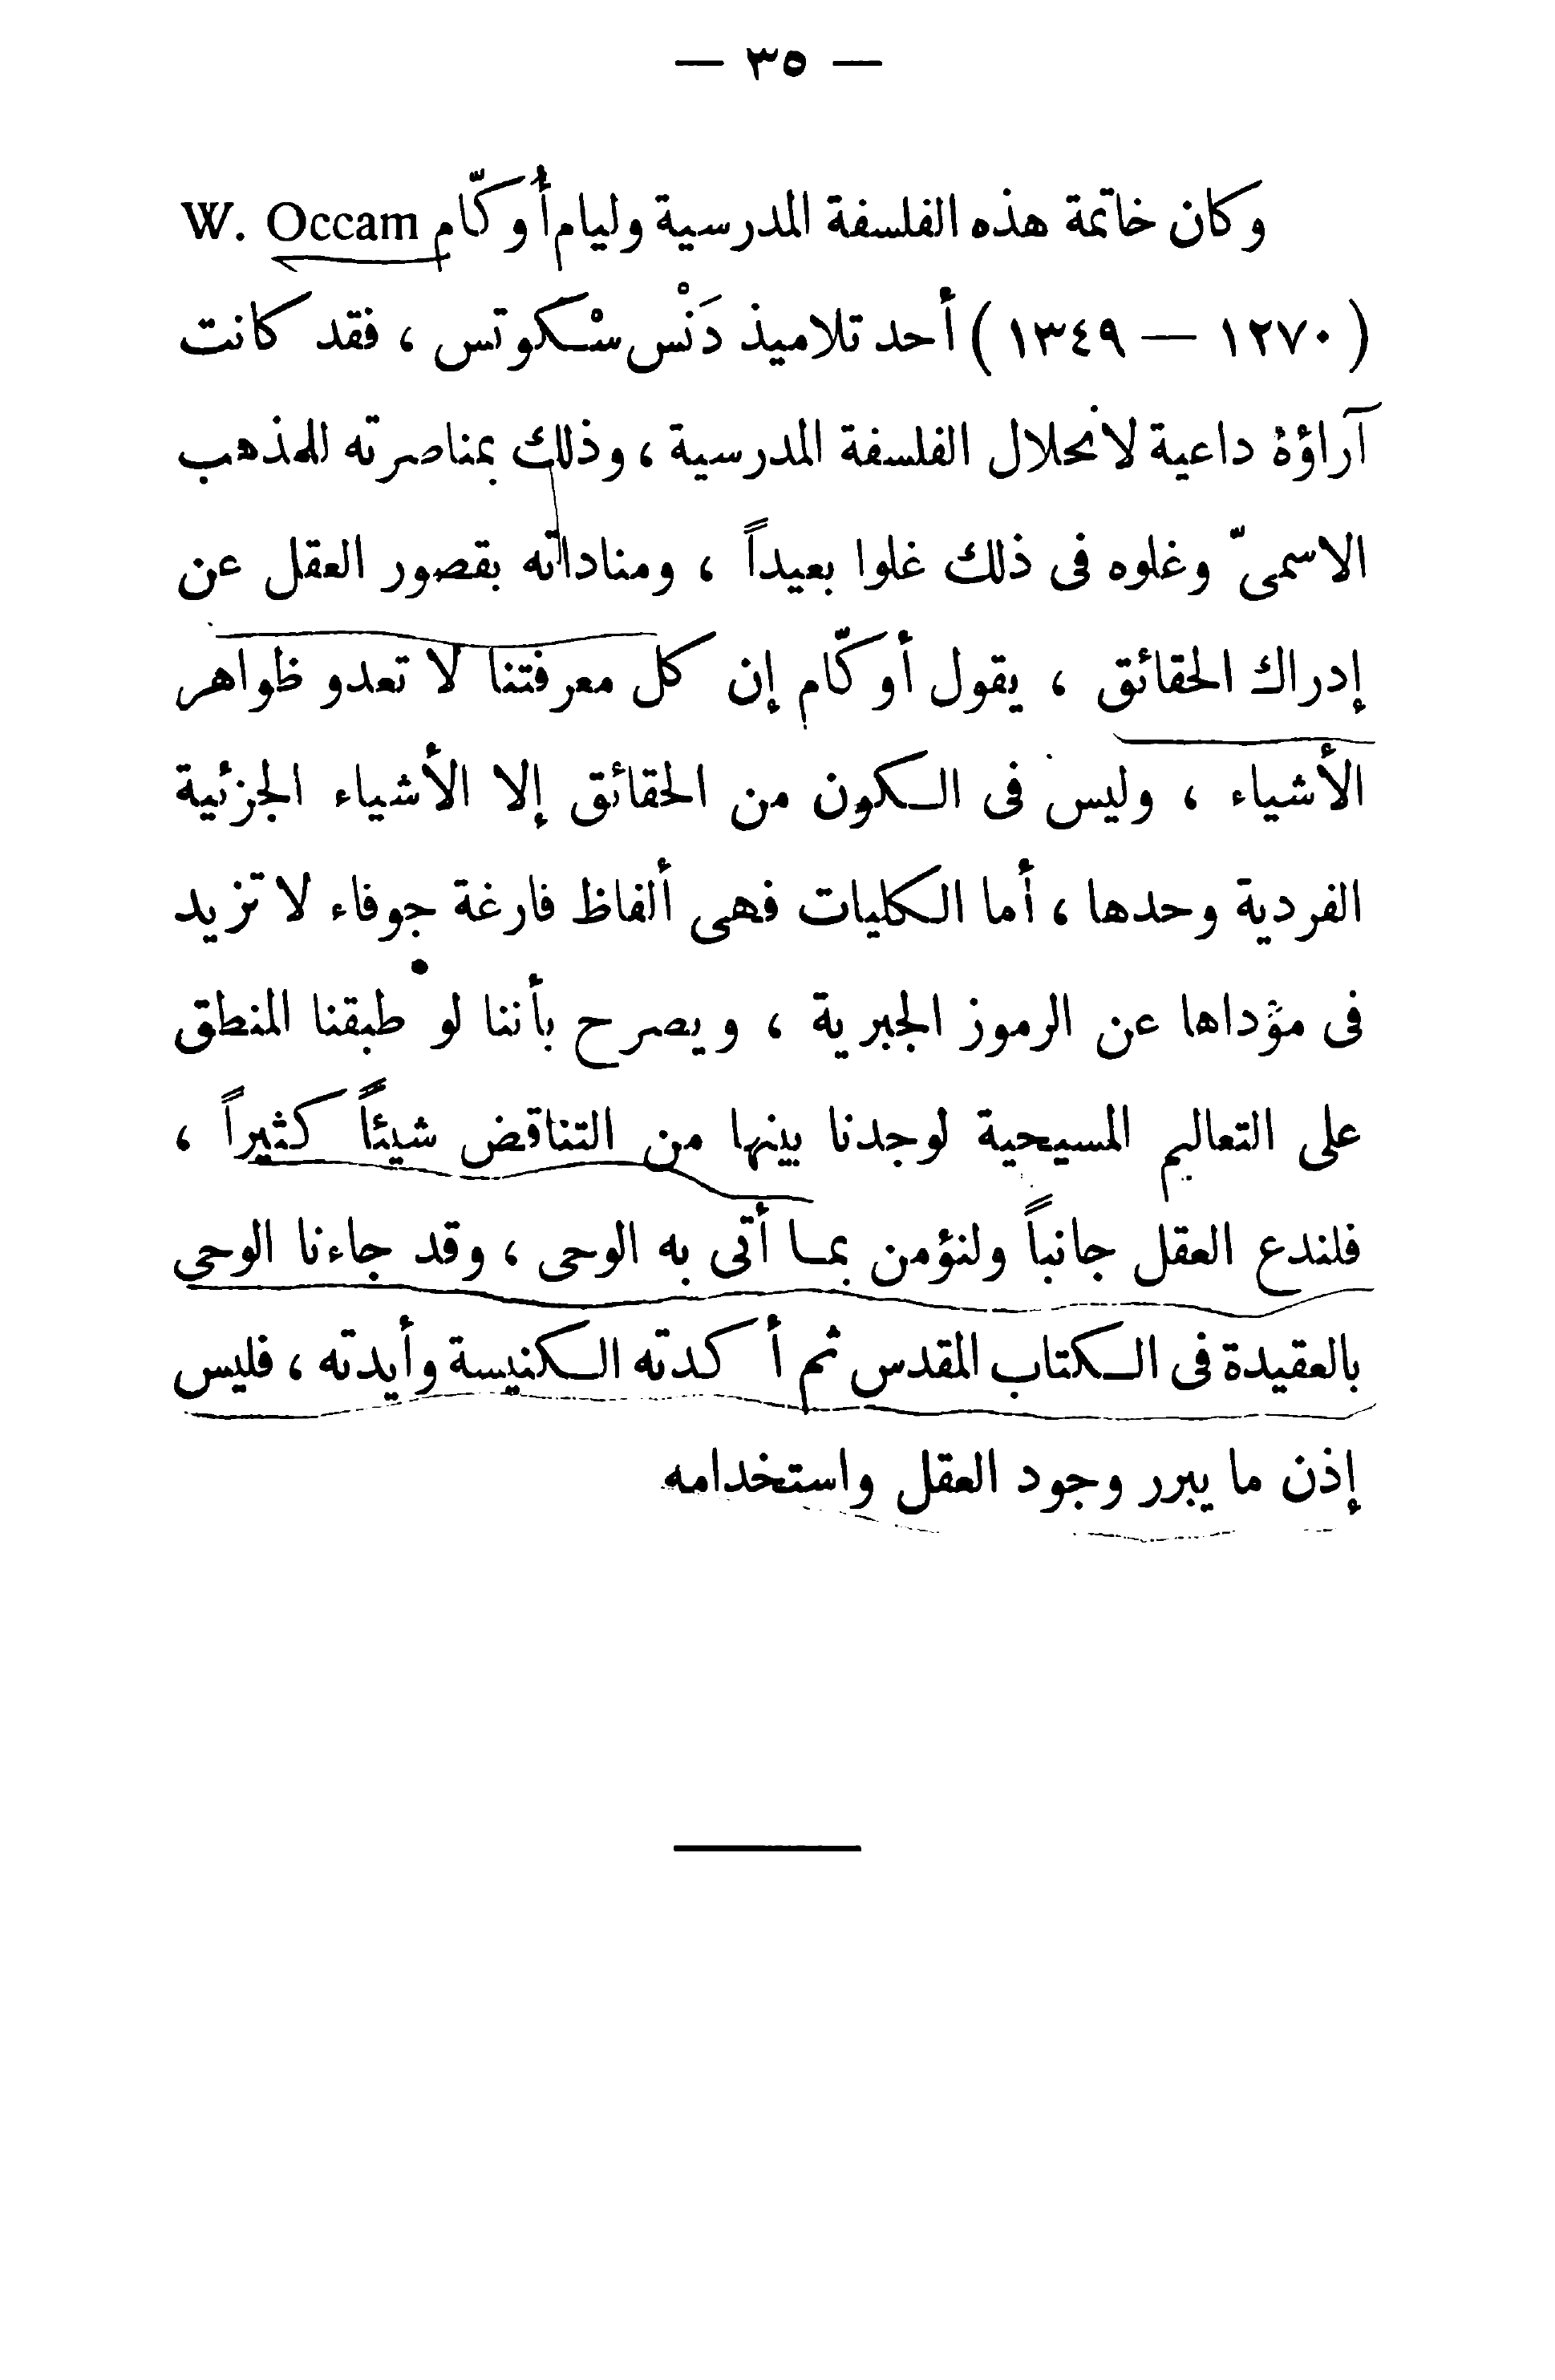 — ٣٥ —
وكان خاتمة هذه الفلسفة المدرسية وليام أُوكّام W. Occam
( ١٢٧٠ — ١٣٤٩ ) أحد تلاميذ دَنْس سْكوتس ، فقد كانت
آراؤه داعية لانحلال الفلسفة المدرسية ، وذلك بمناصرته للمذهب
الاسمىّ وغلوه فى ذلك غلوا بعيداً ، ومناداته بقصور العقل عن
إدراك الحقائق ، يقول أوكّام إن كل معرفتنا لا تعدو ظواهر
الأشياء ، وليس فى الكون من الحقائق إلا الأشياء الجزئية
الفردية وحدها ، أما الكليات فهى ألفاظ فارغة جوفاء لا تزيد
فى مؤداها عن الرموز الجبرية ، ويصرح بأننا لو طبقنا المنطق
على التعاليم المسيحية لوجدنا بينها من التناقض شيئاً كثيراً ،
فلندع العقل جانباً ولنؤمن بما أتى به الوحى ، وقد جاءنا الوحى
بالعقيدة فى الكتاب المقدس ثم أكدته الكنيسة وأيدته ، فليس
إذن ما يبرر وجود العقل واستخدامه